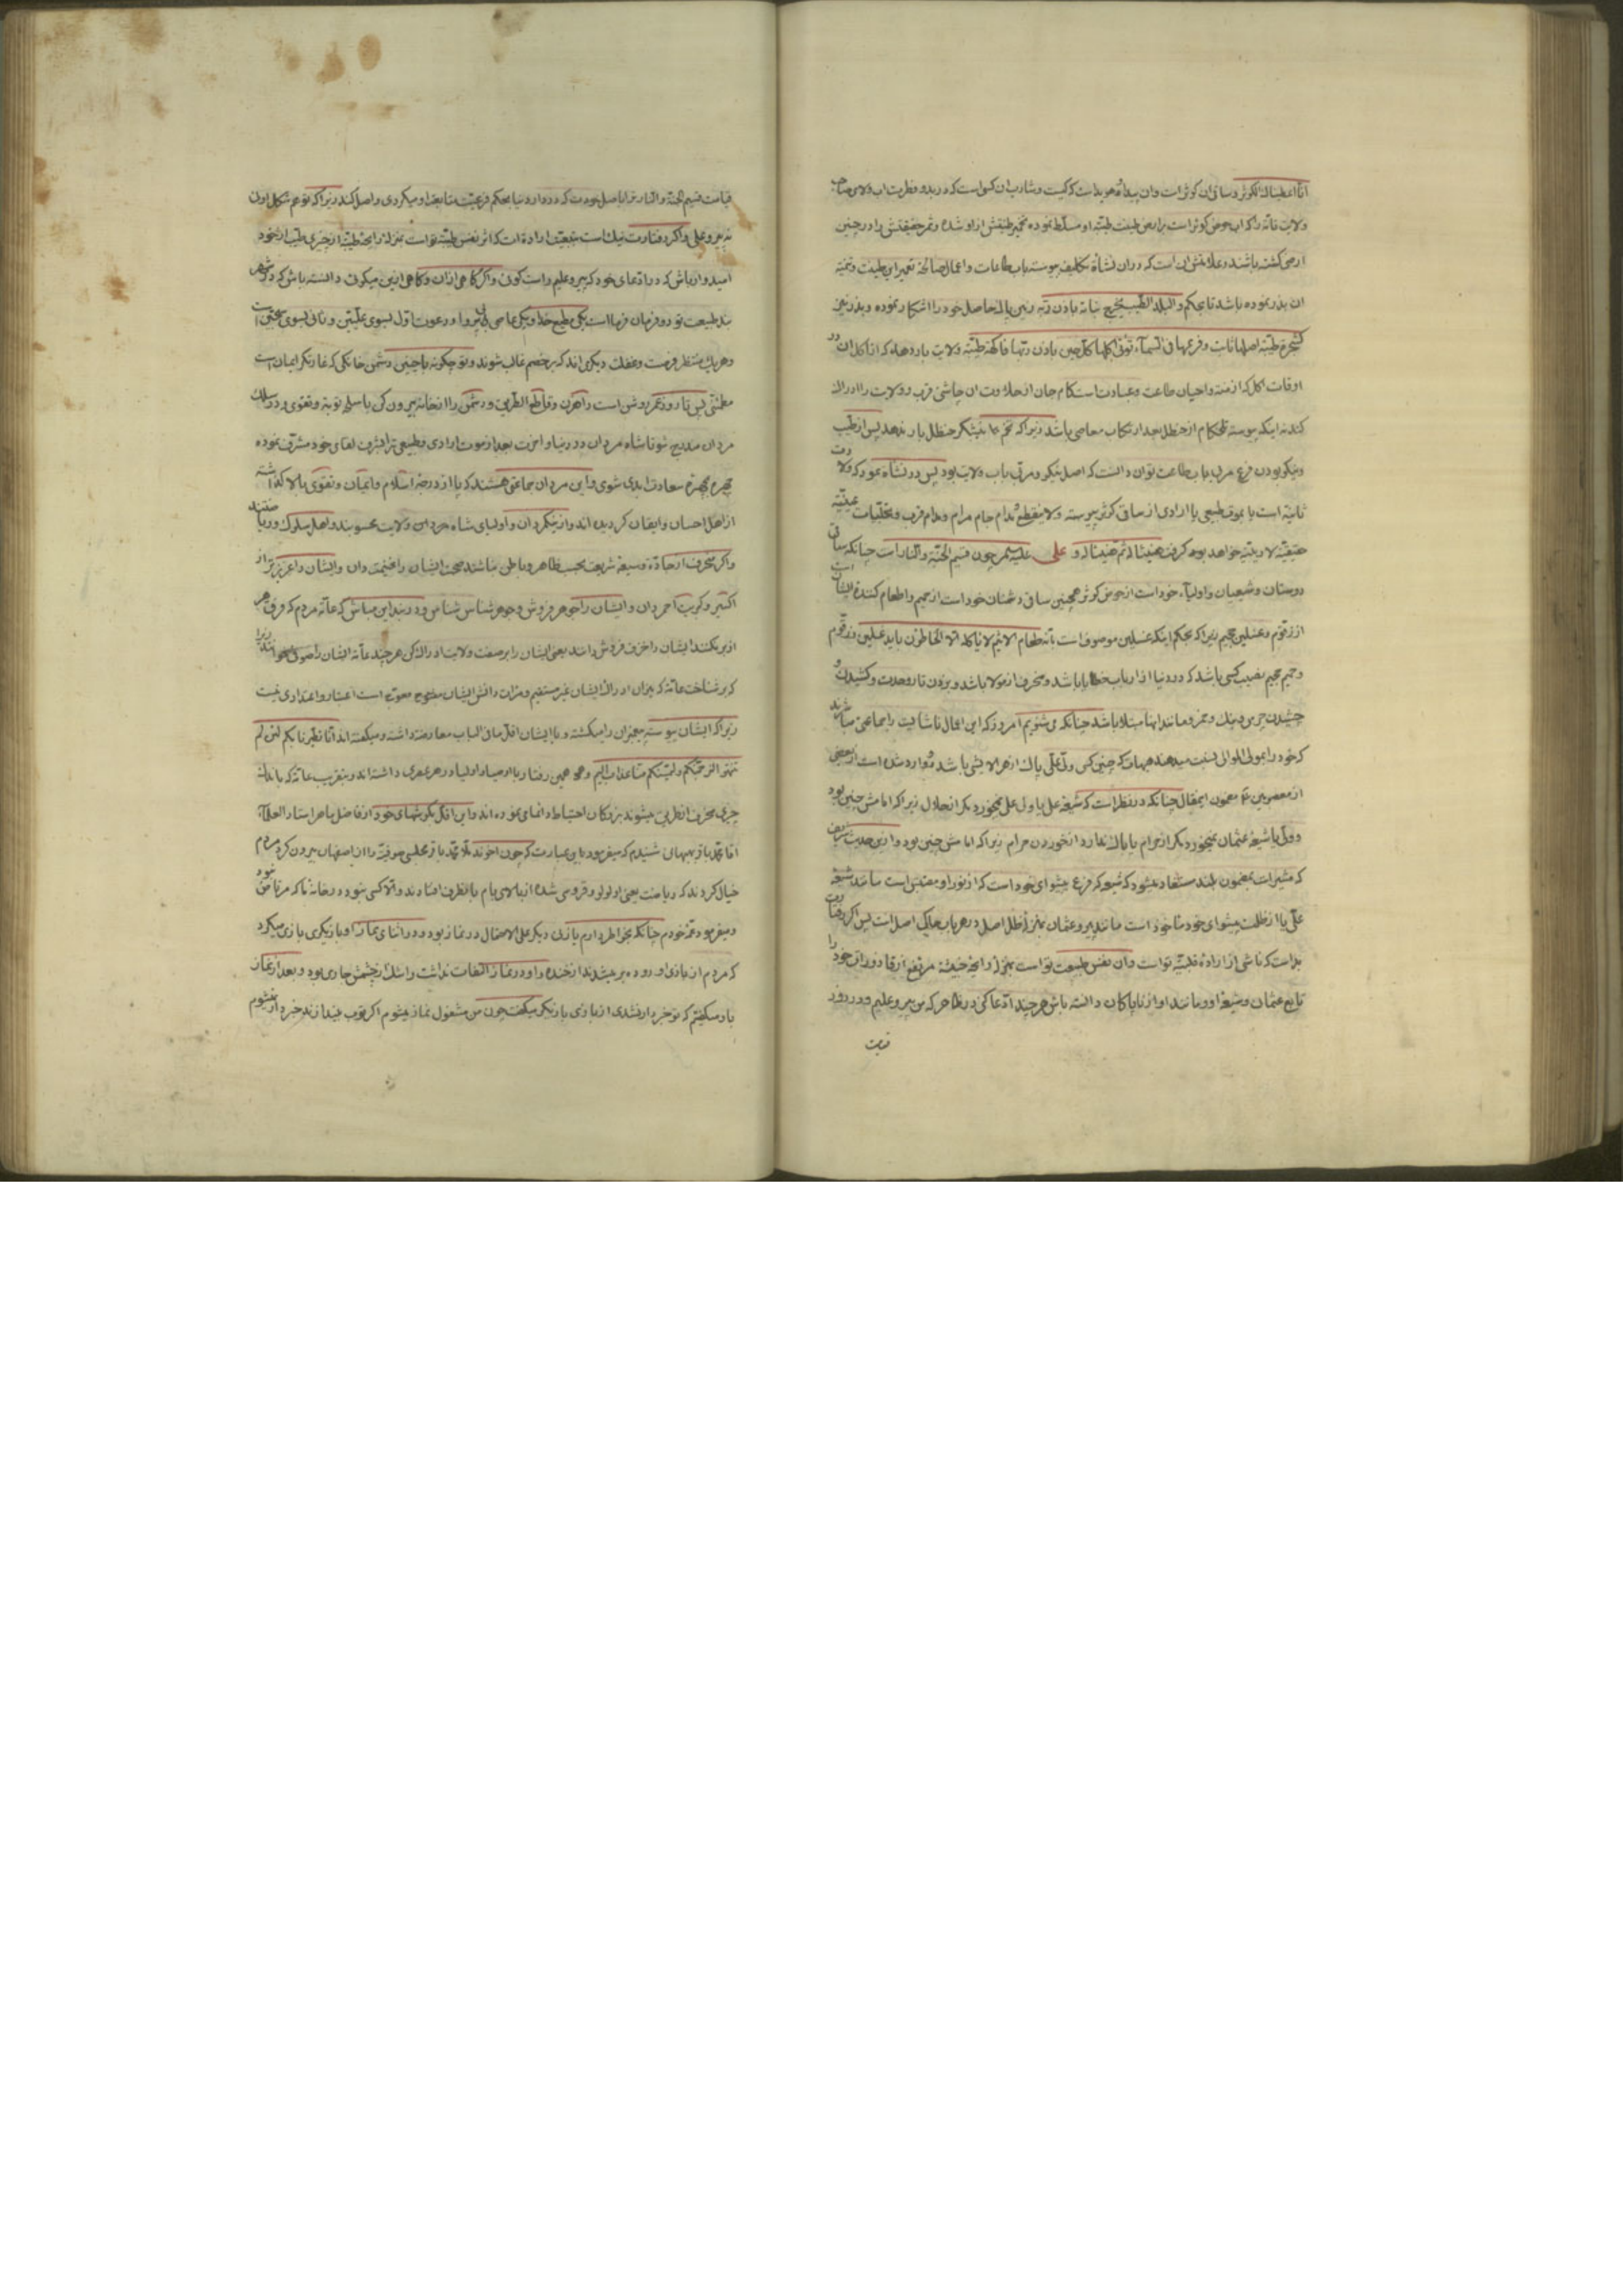 انا اعطیناک الکوثر و ساقی ان کوثر است وان پیداو هویداست که کیست و شارب ان کسی است که در بدو فطرت اب ولای صاحب
ولایت را که اب حوض کوثر است بر ارض طینت طیبه او مسلط نموده تخمیر طینتش از او شده و ثمر حقیقتش را در چنین
ارضی کشته باشند و علامتش ان است که در ان نشأه تکلیف پیوسته باب طاعات و اعمال صالحه تعمیر این طینت و تنمیه
ان بذر نموده باشد تا بحکم و البلد الطیب یخرج نباته باذن ربه حاصل خود را اشکار نموده و بذر یعنی
کشجرة طیبة اصلها ثابت و فرعها فی السماء تؤتی اکلها کل حین باذن ربها فاکهه طیبه ولایت بار دهد که از اکل ان در
اوقات اکل که ازمنه و احیان طاعت و عبادت است کام جان از حلاوت ان چاشنی قرب و ولایت را ادراک
کند نه اینکه پیوسته تلخکام از حنظل بعد ارتکاب معاصی باشد زیرا که تخم نیشکر حنظل بار ندهد پس از طیب
و نیکو بودن فرع مربی باب طاعت توان دانست که اصل نیکو و مربی باب ولایت بود پس در نشأه
ثانیه است یا بموت طبیعی یا ارادی از ساقی کوثر پیوسته ولا ینقطع مدام جام مرام و مدام قرب و تجلیات
حقیقیه لاریبیه خواهد بود گرفت هنیئا له ثم هنیئا له و علی علیه چون قسیم الجنة و النار است چنانکه ساقی
دوستان و شیعیان و اولیاء خود است از حوض کوثر همچنین ساقی دشمنان خود است از حمیم و اطعام کننده ایشان است
از زقوم و غسلین جحیم زیرا که بحکم اینکه غسلین موصوف است بانه طعام الاثیم لا یاکله الا الخاطؤن باید غسلین و زقوم
و حمیم جحیم نصیب کسی باشد که در دنیا از ارباب خطایا باشد و منحرف از مولا باشد و بودن تارو حدت و کشیدن و
چشیدن چرس و بنک و خمر و مانند اینها مبتلا باشد چنانکه می شنویم امروز که این اعمال ناشایست را جماعتی میباشند
که خود را بمولی الموالی نسبت میدهند هیهات که چنین کسی ولی علی پاک از هر الایشی باشد و وارد شده است از بعضی
از معصومین ع مضمون این مقال چنانکه در نظر است که شیعه علی یا ولی علی نمیخورد مکر از حلال زیرا که امامش چنین بود
و ولی یا شیعه عثمان نمیخورد مکر از حرام یا باک ندارد از خوردن حرام زیرا که امامش چنین بود و از این حدیث شریف
که مشیر است بمضمون بلند مستفاد میشود که شیعه که فرع پیشوای خود است که از نور او مقتبس است مانند شیعه
علی یا از ظلمت پیشوای خود ماخوذ است مانند پیرو عثمان بمنزله ظل اصل و در هر باب حاکی اصل است پس اکر رفتارت
بد است که ناشی از اراده قلبیه تو است و ان نفس طبیعت تو است بمنزله رایحه خبیثه مرتفع از قاذورات خود را
تابع عثمان و شیعه او و مانند او از ناپاکان دانسته باش هر چند ادعا کنی در ظاهر که من پیرو علیم و در روز
قیامت
قیامت قسیم الجنة و النار ترا باصل خودت که در دار دنیا بحکم فرعیت متابعت او میکردی واصل کند زیرا که تو
نه پیرو علی و اکر رفتارت نیک است بتبعیت اراده ات که اثر نفس طیبه تو است بمنزله رایحه طیبه از چیزی طیب از خود
امیدوار باش که در ادعای خود که پیرو علیم راست کوئی و اکر کاهی از ان و کاهی از این میکوئی دانسته باش که در شهر
بند طبیعت تو دو فرمان فرما است یکی مطیع خدا و یکی عاصی و دعوت اول بسوی علیین و ثانی بسوی سجین است
و هر یک منتظر فرصت و غفلت دیکری اند که بر خصم غالب شوند و تو چکونه با چنین دشمن خانکی که غارتکر ایمان است
مطمئنی پس تا روز عمر روشن است راهزن و قاطع الطریق و دشمن را از خانه بیرون کن با سلاح توبه و تقوی و در سلک
مردان مندرج شو تا شاه مردان در دنیا و اخرت بعد از موت ارادی و طبیعی ترا بشرف لقای خود مشرف نموده
بهره سعادت ابدی شوی و این مردان جماعتی هستند که پا از درجه اسلام و ایمان و تقوی بالا گذاشته
از اهل احسان و ایقان کردیده اند و از نیکمردان و اولیای شاه مردان ولایت محسوبند و اهل سلوک و ریاضتند
و اکر منحرف از جاده وسیعه شریعت بحسب ظاهر و باطن نباشند صحبت ایشان را غنیمت دان و ایشان را عزیزتر از
اکسیر و کبریت احمر دان و ایشان را جوهر فروش و جوهر شناس شناس و در بند این مباش که عامه مردم که فرق هر
از بر نکنند ایشان را خزف فروش دانند یعنی ایشان را بر صفت ولایت ادراک نکن هر چند عامه ایشان را صوفی خوانند زیرا
که بر شناخت عامه که میزان ادراک ایشان غیر مستقیم و مرات دانش ایشان معوج است اعتبار و اعتمادی نیست
زیرا که ایشان پیوسته پیغمبران را میکشته و با ایشان اقلا ما فی الباب معارضه داشته و میکفته اند انا تطیرنا بکم لئن لم
تنتهوا لنرجمنکم و لیمسنکم منا عذاب الیم و همچنین رفتار با اوصیا و اولیا در هر عصری داشته اند و بتقریب عامه که باندک
چیزی منحرف از طریق میشوند بزرکان احتیاط و اتقای نموده اند و این اقل بکوشهای خود از فاضل ماهر استاد العلماء
اقا محمد باقر بهبهانی شنیدم که میفرمود باین عبارت که چون اخوند ملا محمد باقر مجلسی صوفیه را از اصفهان بیرون کرد مردم
خیال کردند که ریاضت یعنی لولو و قروسی شده از بالای بام باینطرف افتادند والا کسی نبود در خانه ما که مرتاض نبود
و میفرمود عمه خودم چنانکه بخاطر دارم یا زنی دیکر علی الاحتمال در نماز بود و در اثنای نماز او بازیکری بازی میکرد
که مردم از بازی او روده بر میشدند از خنده و او در نماز التفات نداشت و اشک از چشمش جاری بود و بعد از نماز
باو میکفتم که تو خبردار نشدی از بازی بازیکر میکفت چون من مشغول نماز میشوم اکر توپ بیندازند خبردار نمیشوم